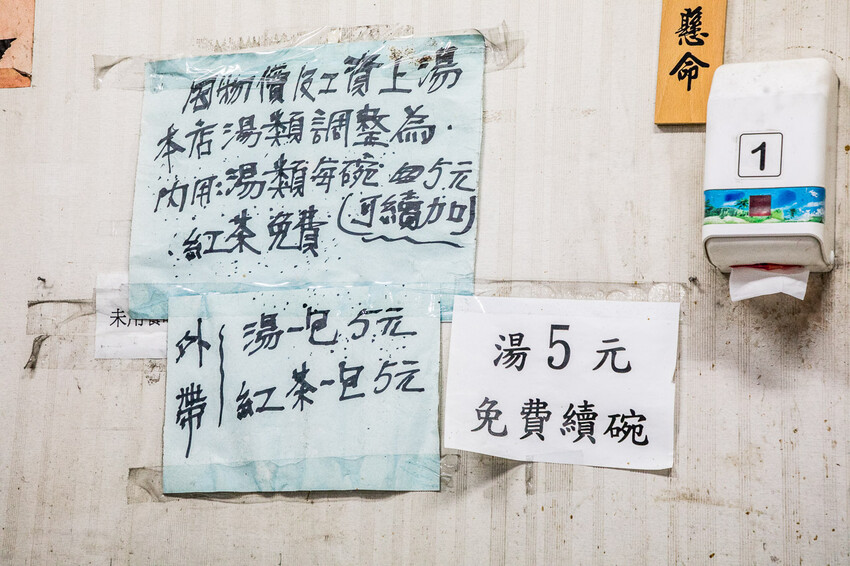 因物價反工資上湯
本店湯類調整為.
內用:湯類每碗 5元
紅茶免費(可續加)
外帶
湯一包5元
紅茶一包5元
未用餐
湯5元
免費續碗
懸命
1